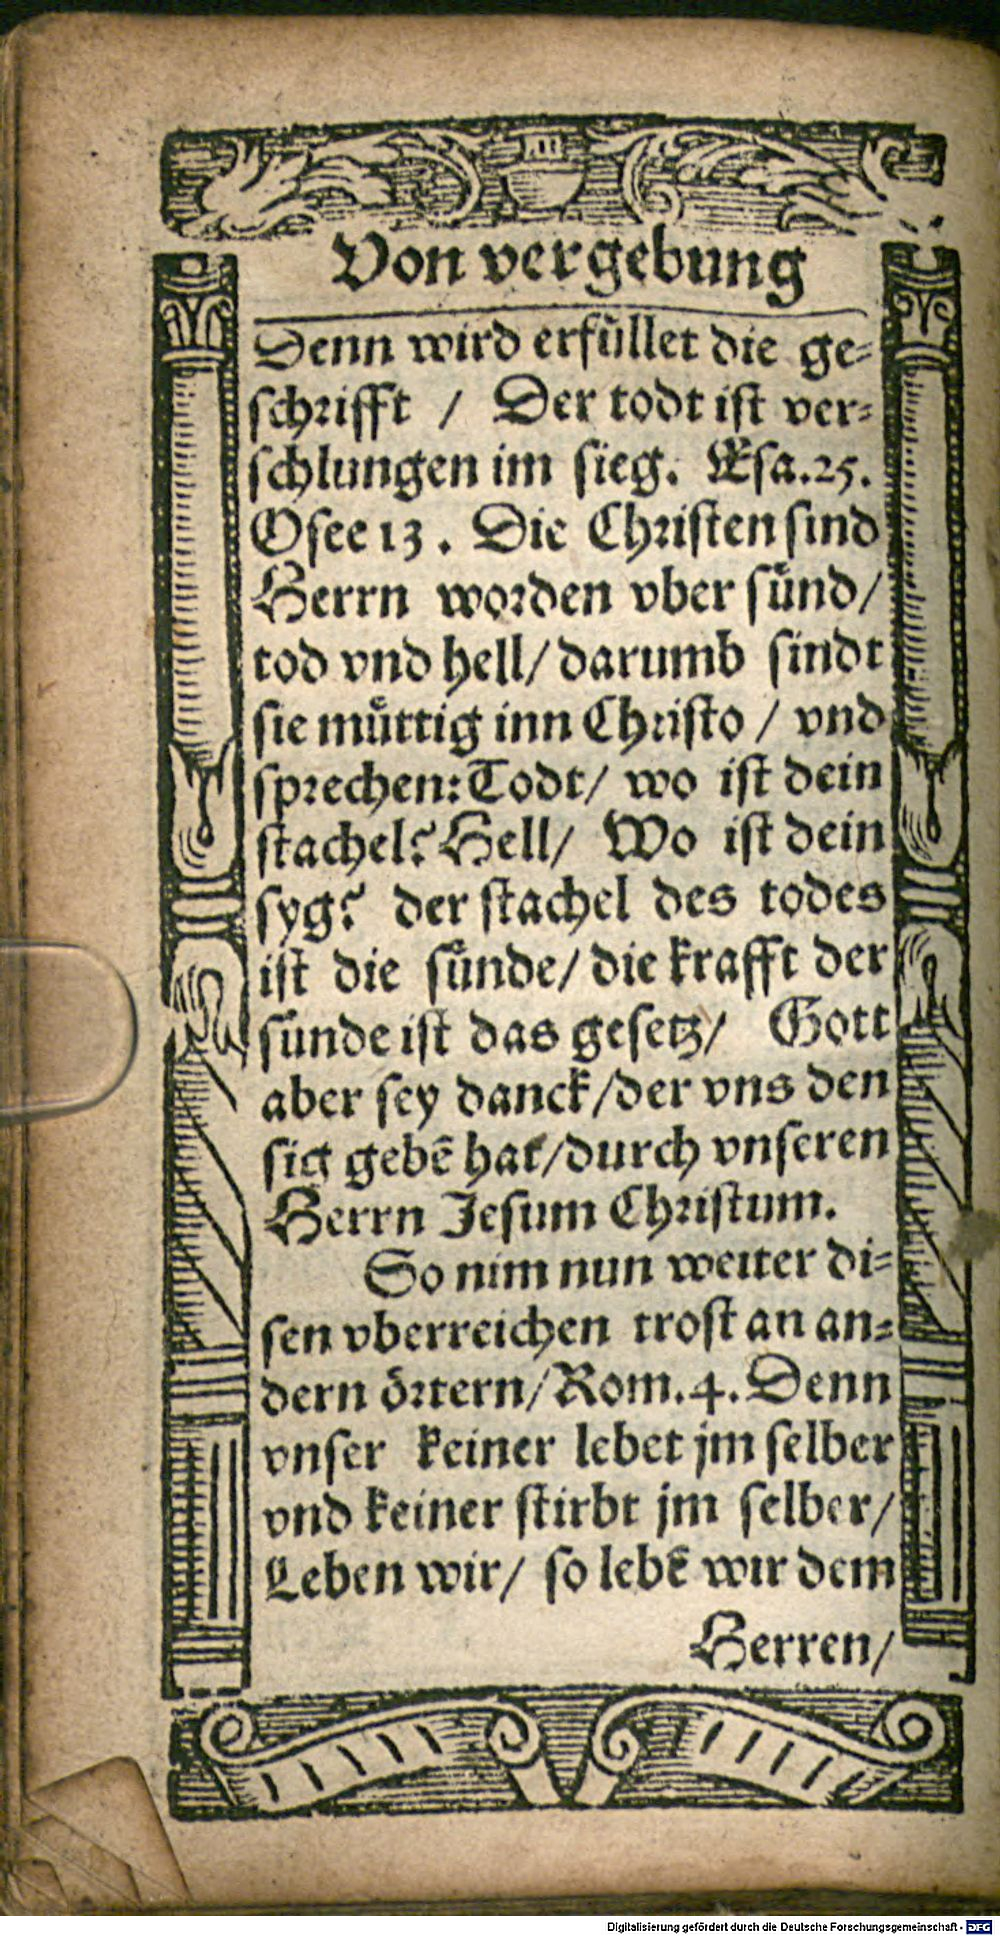 Von vergebung
Denn wird erfüllet die ge-
schrifft / Der todt ist ver-
schlungen im sieg. Esa.25.
Osee 13. Die Christen sind
Herrn worden vber sünd/
tod vnd hell/ darumb sindt
sie müttig inn Christo / vnd
sprechen: Todt/ wo ist dein
stachel? Hell/ Wo ist dein
syg? der stachel des todes
ist die sünde/ die krafft der
sünde ist das gesetz/ Gott
aber sey danck/der vns den
sig gebē hat/durch vnseren
Herrn Jesum Christum.
So nim nun weiter di-
sen vberreichen trost an an-
dern örtern/ Rom.4. Denn
vnser keiner lebet jm selber
vnd keiner stirbt jm selber/
Leben wir/ so lebē wir dem
Herren/
Digitalisierung gefördert durch die Deutsche Forschungsgemeinschaft - DFG